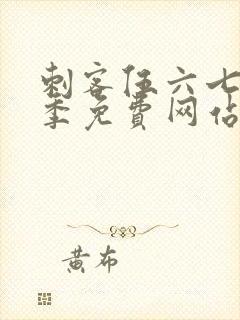 刺客伍六七
季免費网站
黄布